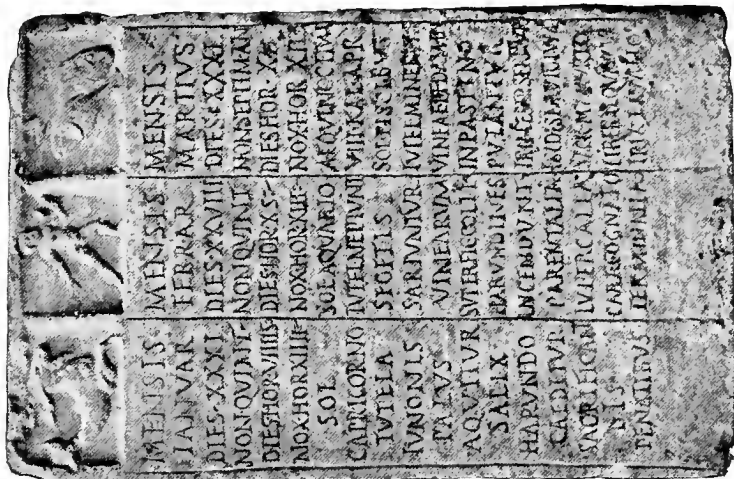 MENSIS
IANVAR
DIES·XXXI
NON·QVINT
DIES·HOR·VIIII
NOX·HOR·XIIII
SOL
CAPRICORNO
TVTELA
IVNONIS
PALVS
AQVITVR
SALIX
HARVNDO
CAEDITVR
SACRIFICAN
PENATIBVS
MENSIS
FEBRAR
DIES·XXVIII
NON·QVINT
DIES·HOR·X·S
NOX·HOR·XIII
SOL·AQVARIO
TVTEL·NEPTVNI
SEGETES
SARIVNTVR
VINEARVM
SVPERFIC·COLIT
HARVNDINES
INCENDVNT
PARENTALIA
LVPERCALIA
CARA·COGNATIO
TERMINALIA
MENSIS
MARTIVS
DIES·XXXI
NON·SEPTIMAN
DIES·HOR·XII
NOX·HOR·XII
AEQVINOCTIVM
VIII·KAL·APR
SOL·PISCIBVS
TVTEL·MINER
VINEAE·PEDAM
IN·PASTINO
PVTANTVR